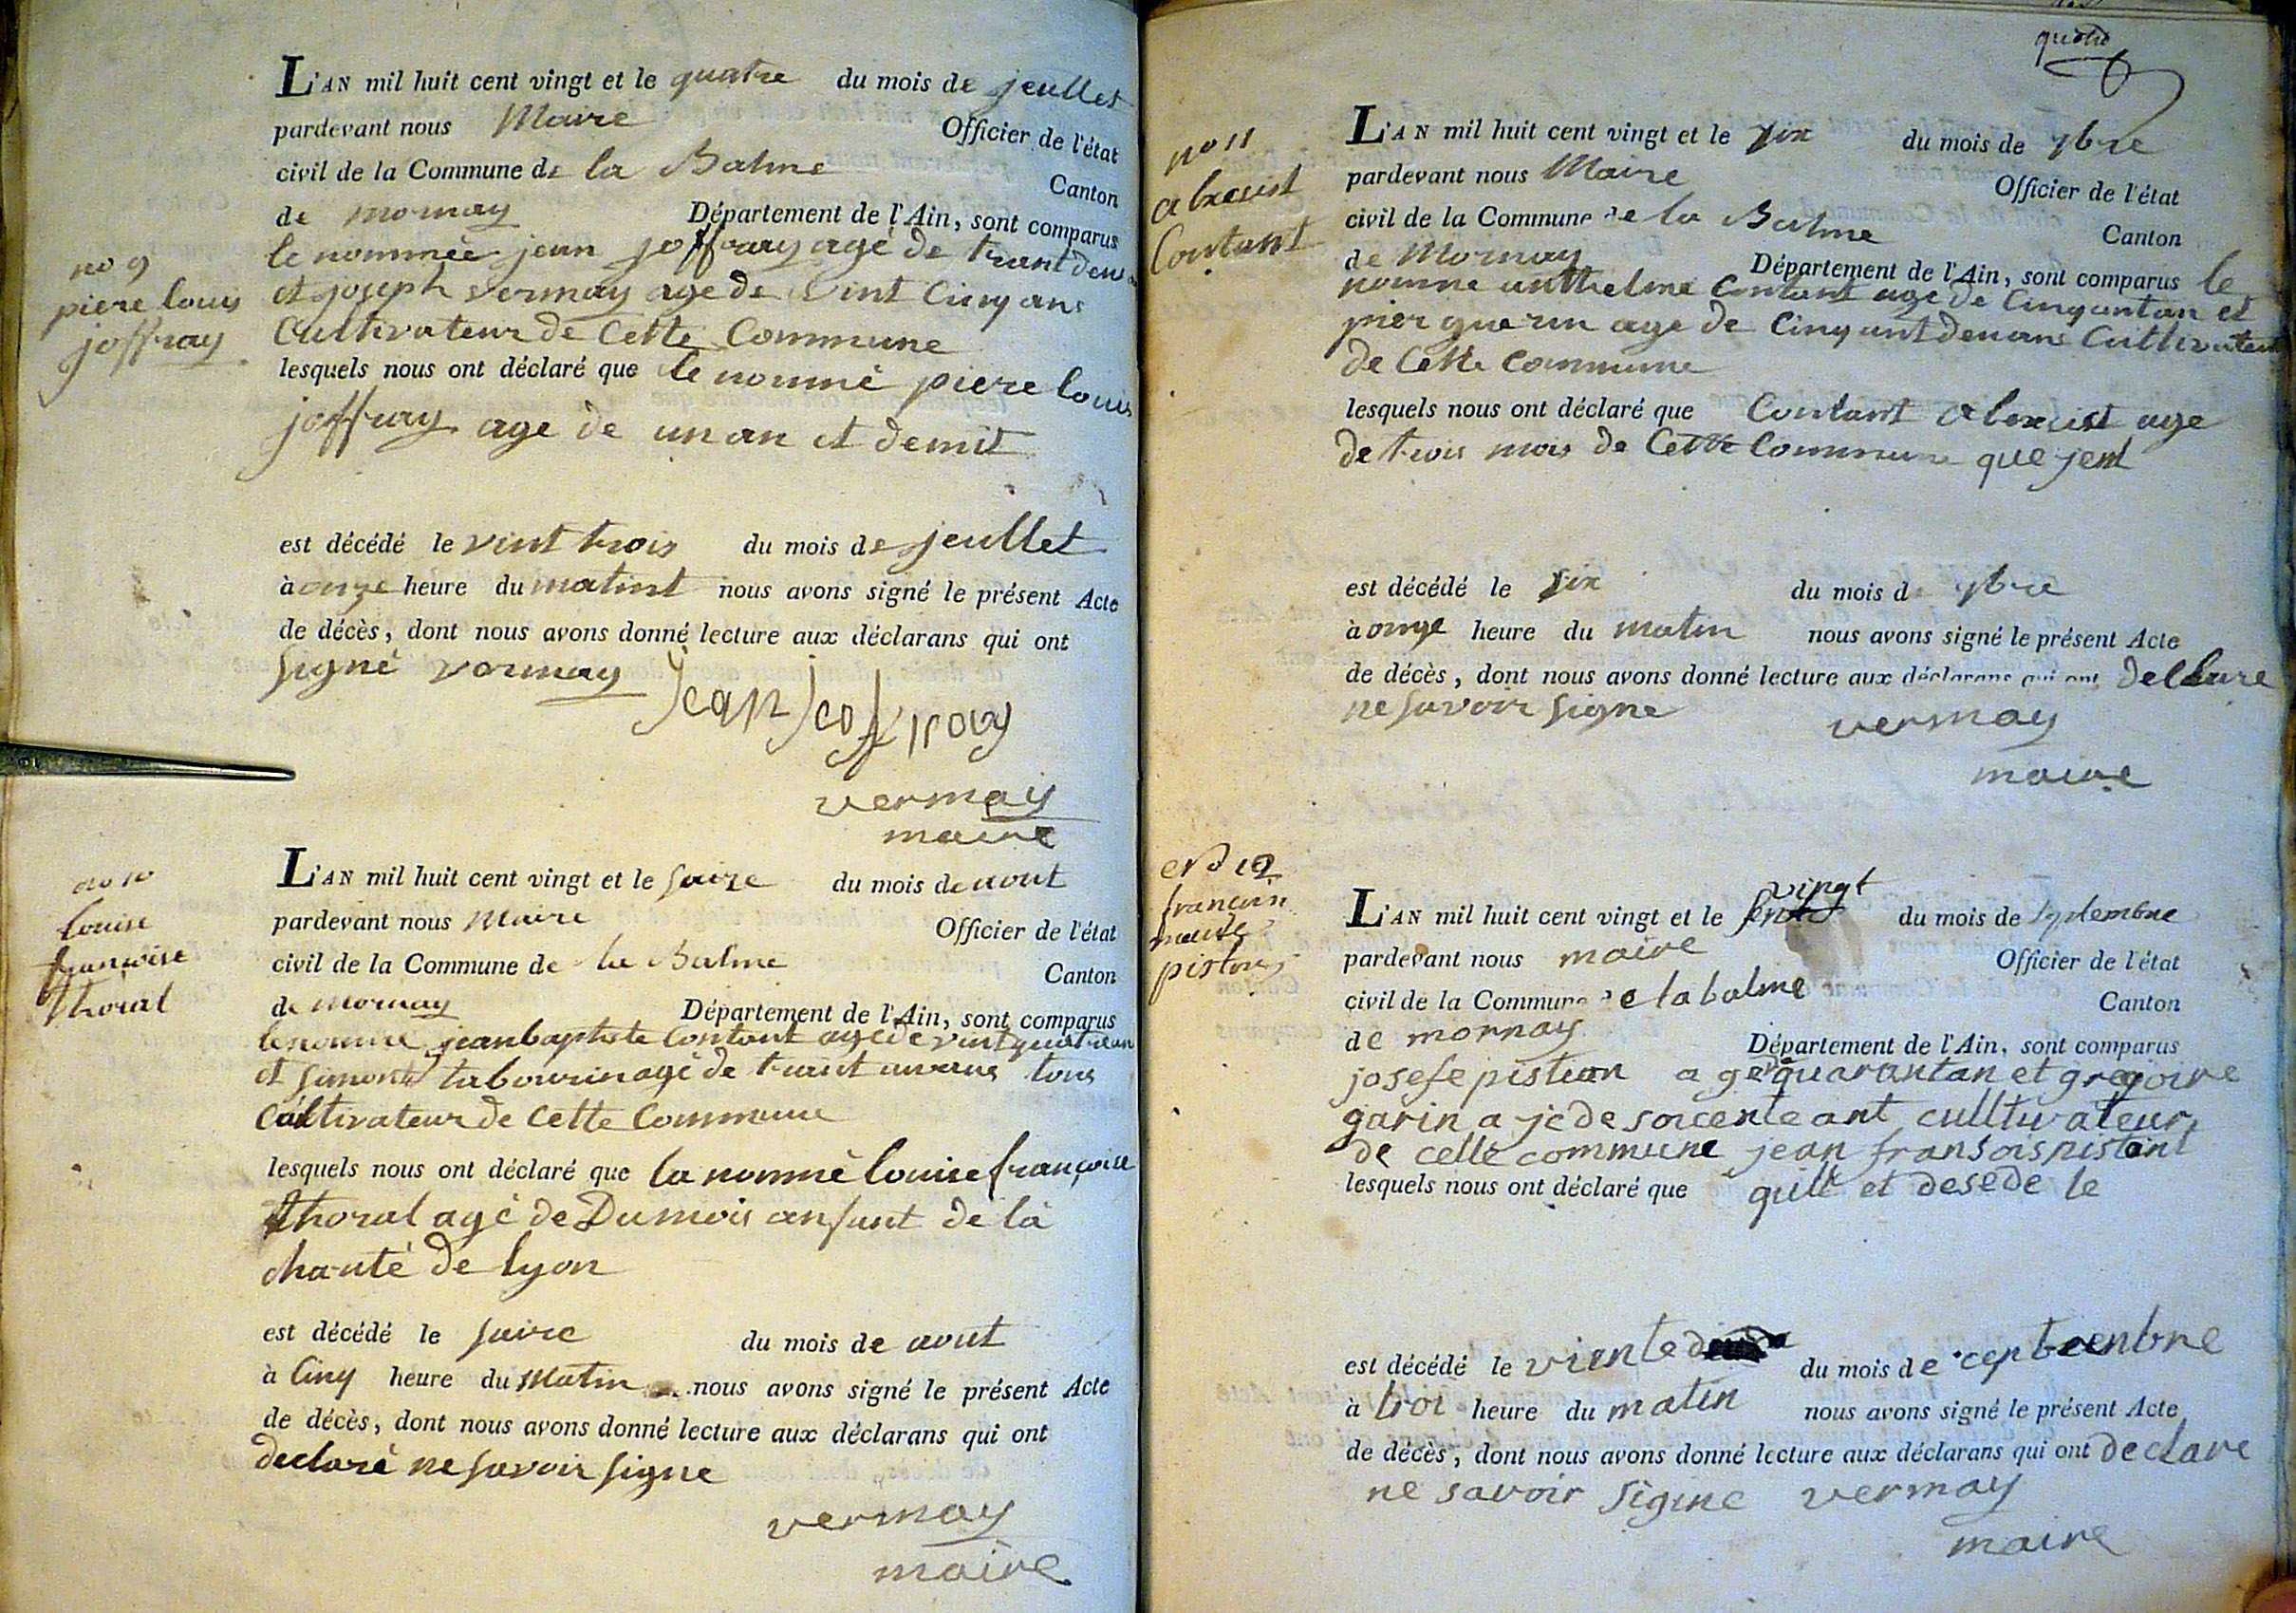 L'AN mil huit cent vingt et le quatre du mois de jeullet
pardevant nous Maire Officier de l'état
civil de la Commune de la Balme Canton
de mornay Département de l'Ain, sont comparus
le nommée jean joffray agé de trant deux
et joseph vermay age de vint cinq ans
Cultivateur de Cette Commune
lesquels nous ont déclaré que le nommé piere louis
joffray age de un an et demit
no 9
piere louis
joffray
est décédé le vint trois du mois de jeullet
à onze heure du matint nous avons signé le présent Acte
de décès, dont nous avons donné lecture aux déclarans qui ont
signé vermay
Jean Jeoffroy
vermay
maire
no 10
louise
françoise
thoral
L'AN mil huit cent vingt et le saize du mois de aout
pardevant nous Maire Officier de l'état
civil de la Commune de la Balme Canton
de mornay Département de l'Ain, sont comparus
le nommé jean baptiste Contant agé de vint quatre an
et simont tabourin agé de trant un ans tous
Cultivateur de Cette Commune
lesquels nous ont déclaré que la nommé louise françoise
thoral agé de Du mois anfant de la
charité de lyon
est décédé le saize du mois de aout
à Cinq heure du Matin nous avons signé le présent Acte
de décès, dont nous avons donné lecture aux déclarans qui ont
declaré ne savoir signe
vermay
maire
no 11
Contant
L'AN mil huit cent vingt et le six du mois de 7bre
pardevant nous Maire Officier de l'état
civil de la Commune de la Balme Canton
de Mornay Département de l'Ain, sont comparus le
nomme anthelme Contant age de Cinquantan et
pier guerin age de Cinquant deu ans Cultivateur
de Cette Commune
lesquels nous ont déclaré que Contant alexist age
de trois mois de Cette Commune que
est décédé le six du mois de 7bre
à onze heure du matin nous avons signé le présent Acte
de décès, dont nous avons donné lecture aux déclarans qui ont declare
ne savoir signe vermay
maire
no 12
piston
L'AN mil huit cent vingt et le vingt du mois de septembre
pardevant nous maire Officier de l'état
civil de la Commune de la balme Canton
de mornay Département de l'Ain, sont comparus
josefe pistion age de quarantan et gregoire
garin a je de soicente ant cultivateur
de celle commune jean fransois pistont
lesquels nous ont déclaré que quilt et desede le
est décédé le viente du mois de ceptembre
à troi heure du matin nous avons signé le présent Acte
de décès, dont nous avons donné lecture aux déclarans qui ont declare
ne savoir signe vermay
maire